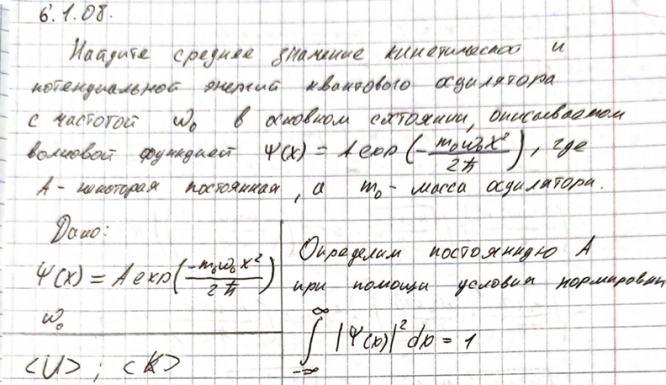 6.1.08.
Найдите среднее значение кинетической и
потенциальной энергий квантового осциллятора
с частотой ω₀ в основном состоянии, описываемом
волновой функцией Ψ(x) = A exp(-m₀ω₀x²/2ħ), где
A - некоторая постоянная, а m₀ - масса осциллятора.
Дано:
Ψ(x) = A exp(-m₀ω₀x²/2ħ)
ω₀
<U>; <K>
Определим постоянную A
при помощи условия нормировки
∫_{-∞}^{∞} |Ψ(x)|² dx = 1